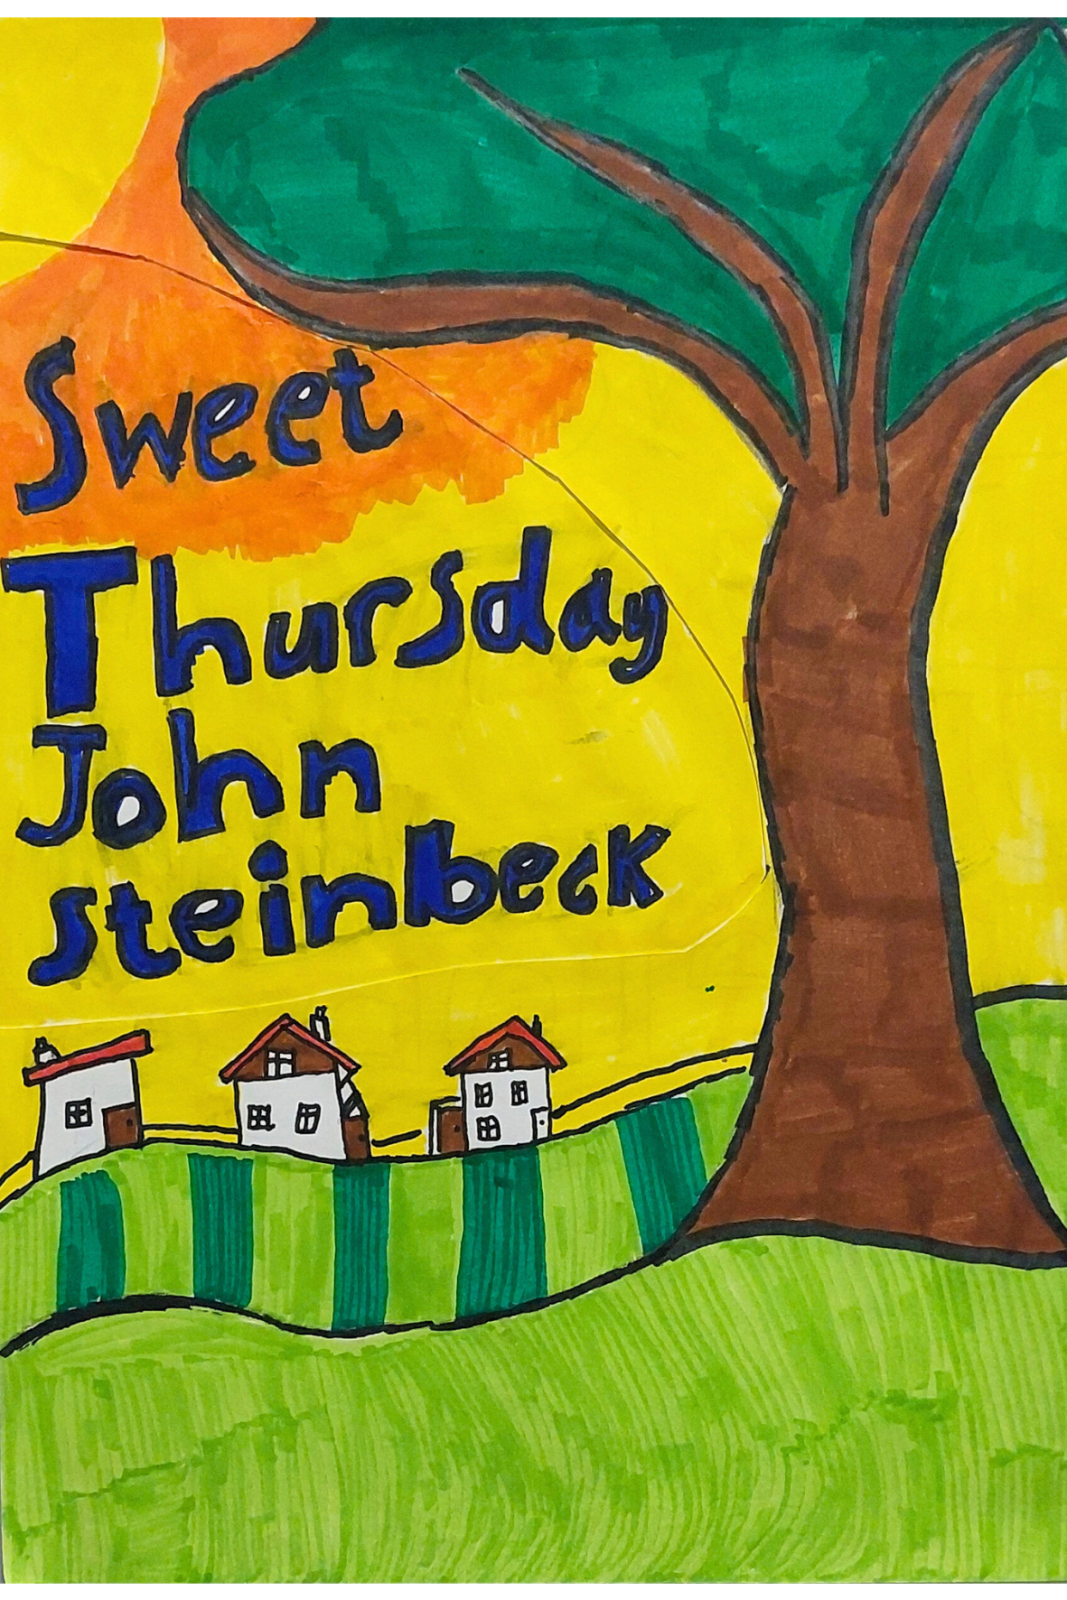 Sweet
Thursday
John
steinbeck